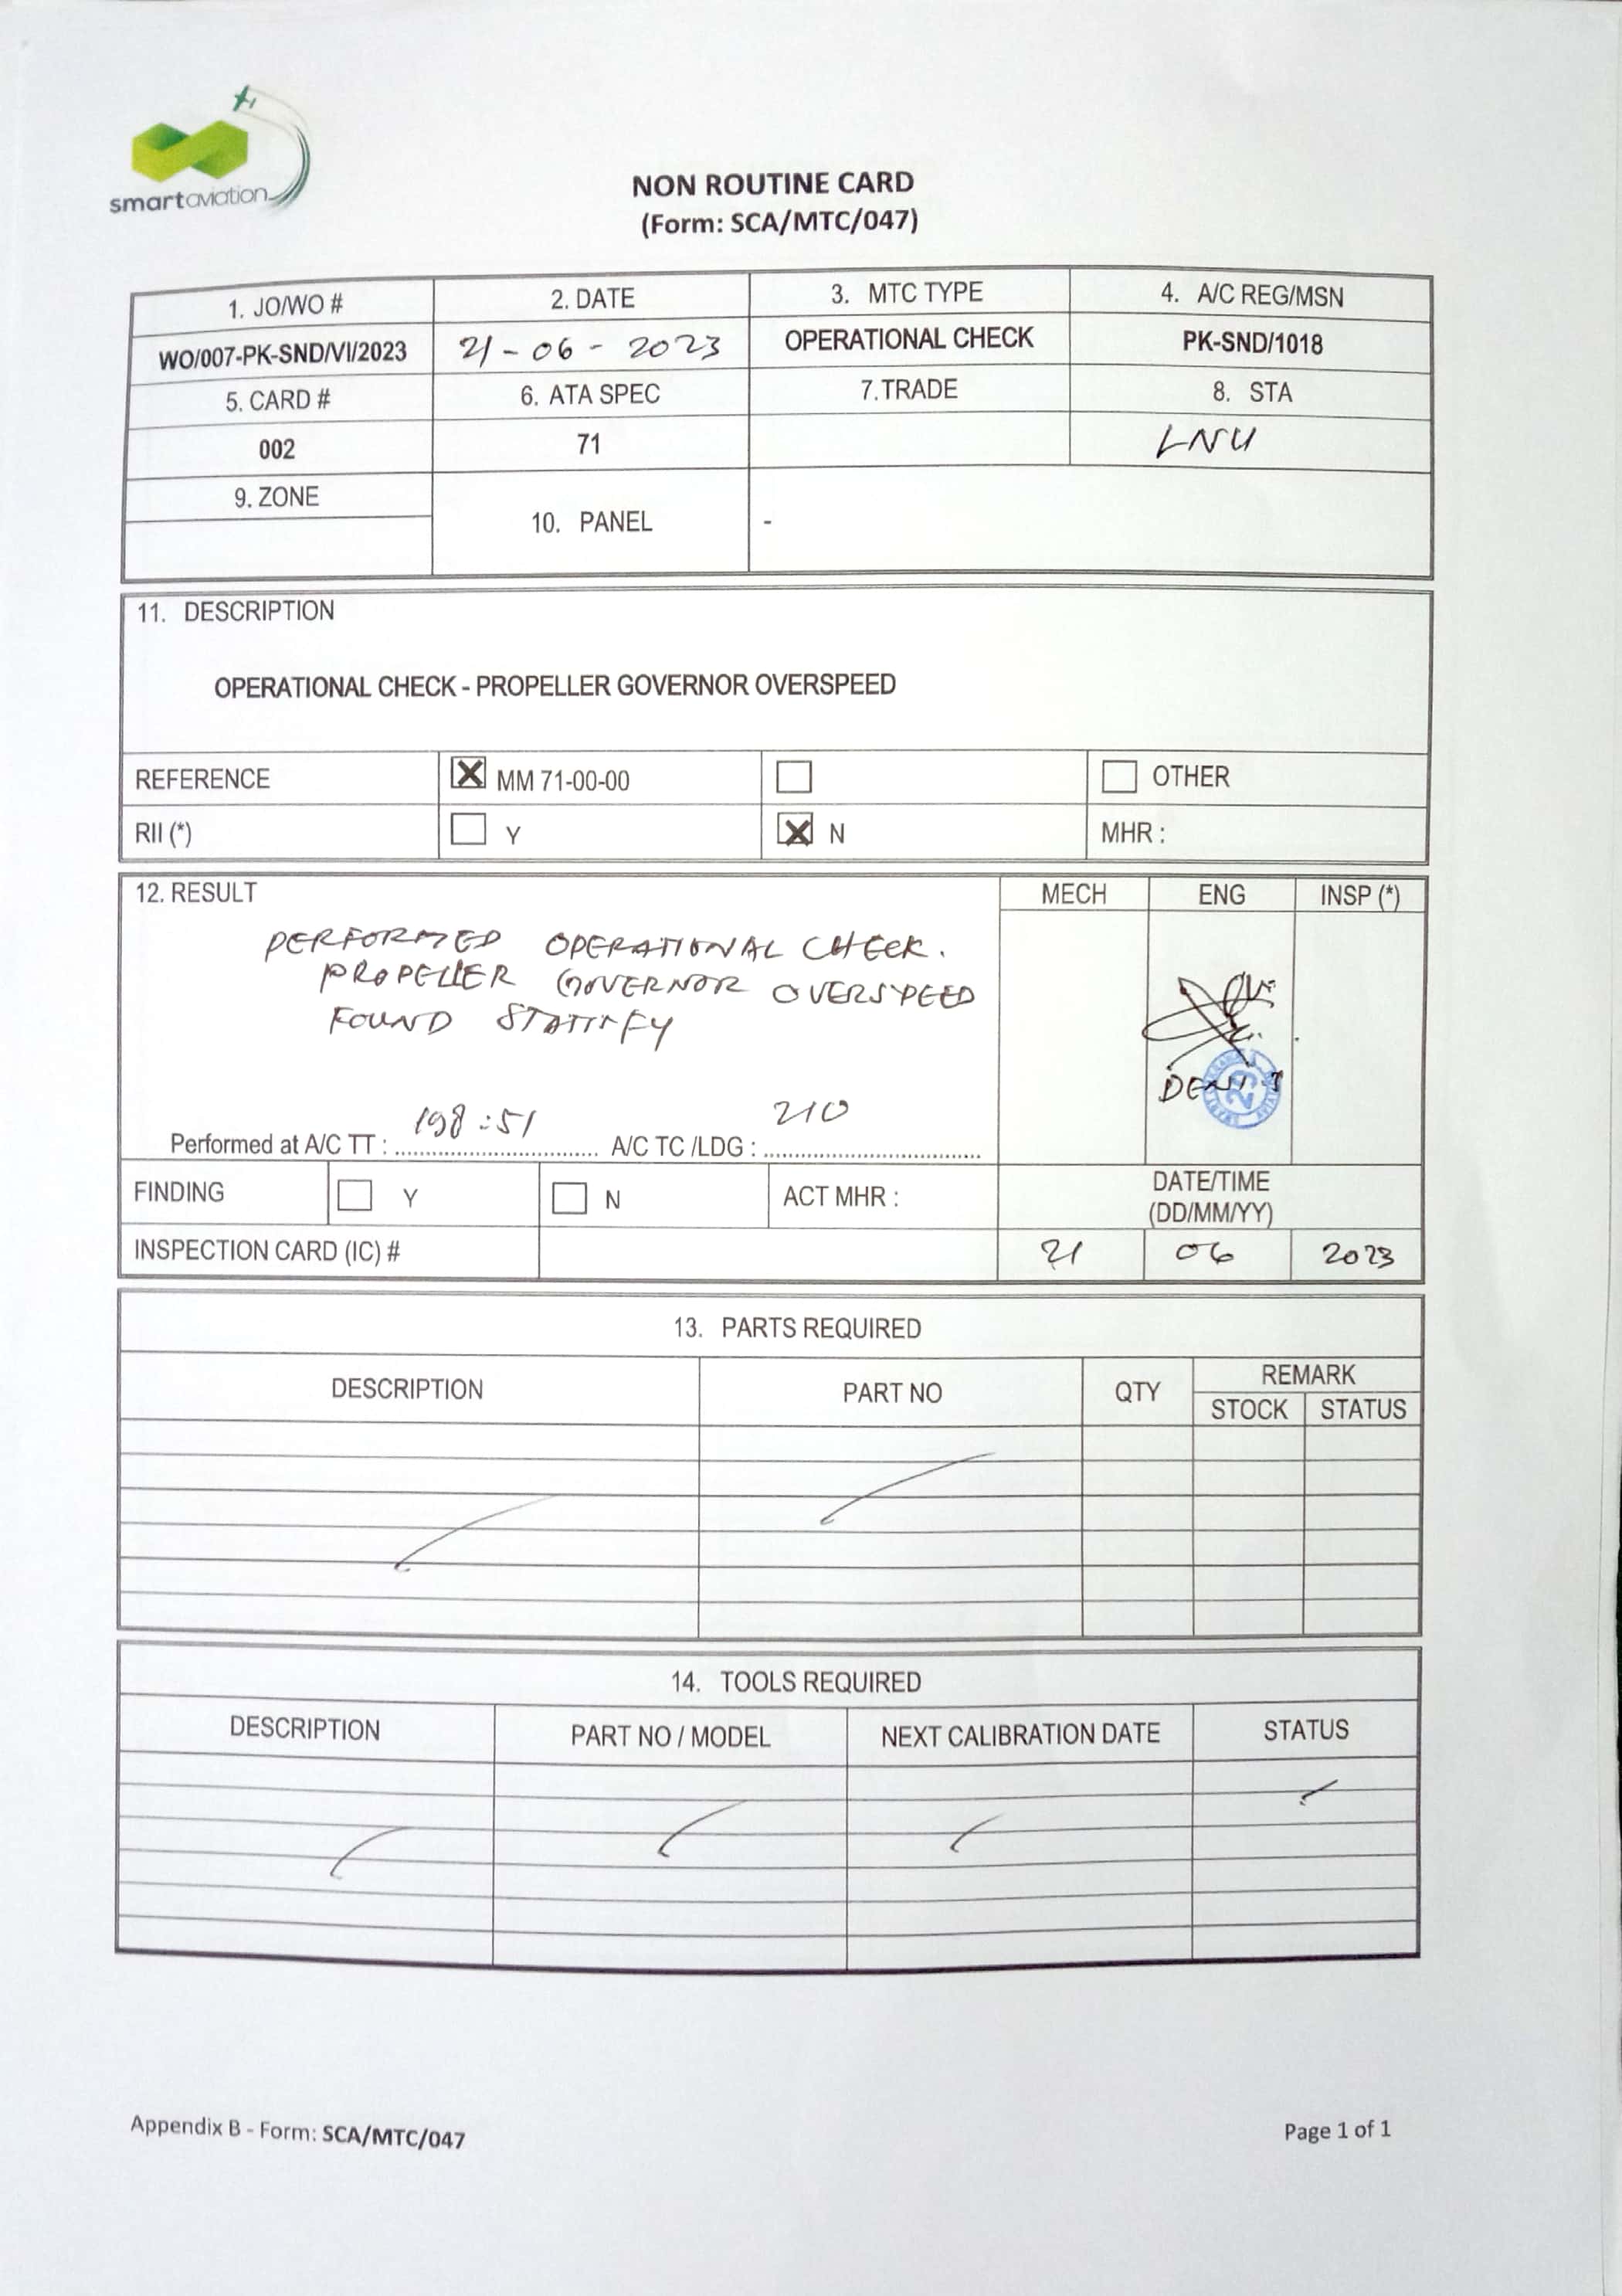 smartaviation
NON ROUTINE CARD
(Form: SCA/MTC/047)
1. JO/WO #
2. DATE
3. MTC TYPE
4. A/C REG/MSN
WO/007-PK-SND/VI/2023
21-06-2023
OPERATIONAL CHECK
PK-SND/1018
5. CARD #
6. ATA SPEC
7.TRADE
8. STA
002
71
LNU
9. ZONE
10. PANEL
-
11. DESCRIPTION
OPERATIONAL CHECK - PROPELLER GOVERNOR OVERSPEED
REFERENCE
MM 71-00-00
OTHER
RII (*)
Y
N
MHR :
12. RESULT
MECH
ENG
INSP (*)
PERFORMED OPERATIONAL CHECK.
PROPELLER GOVERNOR OVERSPEED
FOUND STATISFY
DENI
23
198:51
210
Performed at A/C TT : .............................. A/C TC /LDG : ................................
FINDING
Y
N
ACT MHR :
DATE/TIME
(DD/MM/YY)
INSPECTION CARD (IC) #
21
06
2023
13. PARTS REQUIRED
DESCRIPTION
PART NO
QTY
REMARK
STOCK
STATUS
14. TOOLS REQUIRED
DESCRIPTION
PART NO / MODEL
NEXT CALIBRATION DATE
STATUS
Appendix B - Form: SCA/MTC/047
Page 1 of 1